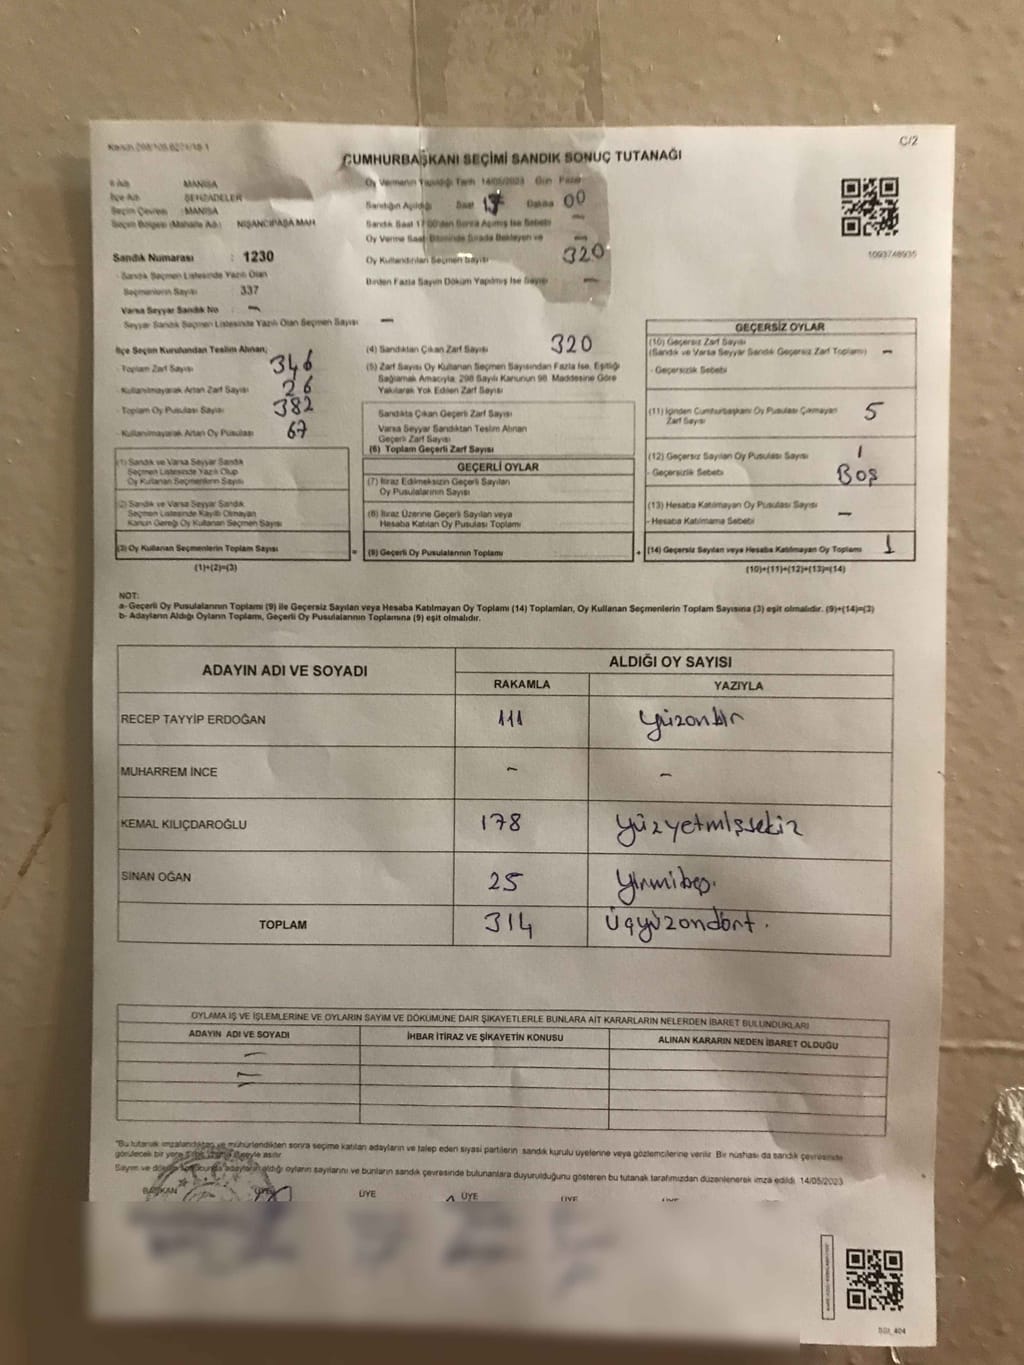 Kanun 298/105.6271/18-1
C/2
CUMHURBAŞKANI SEÇİMİ SANDIK SONUÇ TUTANAĞI
İl Adı : MANİSA
İlçe Adı : ŞEHZADELER
Seçim Çevresi : MANİSA
Seçim Bölgesi (Mahalle Adı) : NİŞANCIPAŞA MAH
Sandık Numarası : 1230
- Sandık Seçmen Listesinde Yazılı Olan
Seçmenlerin Sayısı : 337
Varsa Seyyar Sandık No : -
Seyyar Sandık Seçmen Listesinde Yazılı Olan Seçmen Sayısı : -
Oy Vermenin Yapıldığı Tarih 14/05/2023 Gün Pazar
Sandığın Açıldığı Saat 17 Dakika 00
Sandık Saat 17:00'den Sonra Açılmış İse Sebebi -
Oy Verme Saati Bitiminde Sırada Bekleyen ve -
Oy Kullandırılan Seçmen Sayısı 320
Birden Fazla Sayım Döküm Yapılmış İse Sayısı -
1093748935
İlçe Seçim Kurulundan Teslim Alınan;
- Toplam Zarf Sayısı : 346
- Kullanılmayarak Artan Zarf Sayısı : 26
- Toplam Oy Pusulası Sayısı : 382
- Kullanılmayarak Artan Oy Pusulası : 67
(1) Sandık ve Varsa Seyyar Sandık
Seçmen Listesinde Yazılı Olup
Oy Kullanan Seçmenlerin Sayısı
(2) Sandık ve Varsa Seyyar Sandık
Seçmen Listesinde Kayıtlı Olmayan
Kanun Gereği Oy Kullanan Seçmen Sayısı
(3) Oy Kullanan Seçmenlerin Toplam Sayısı
(1)+(2)=(3)
(4) Sandıktan Çıkan Zarf Sayısı 320
(5) Zarf Sayısı Oy Kullanan Seçmen Sayısından Fazla İse, Eşitliği
Sağlamak Amacıyla; 298 Sayılı Kanunun 98. Maddesine Göre
Yakılarak Yok Edilen Zarf Sayısı
Sandıkta Çıkan Geçerli Zarf Sayısı
Varsa Seyyar Sandıktan Teslim Alınan
Geçerli Zarf Sayısı
(6) Toplam Geçerli Zarf Sayısı
GEÇERLİ OYLAR
(7) İtiraz Edilmeksizin Geçerli Sayılan
Oy Pusulalarının Sayısı
(8) İtiraz Üzerine Geçerli Sayılan veya
Hesaba Katılan Oy Pusulası Toplamı
= (9) Geçerli Oy Pusulalarının Toplamı +
GEÇERSİZ OYLAR
(10) Geçersiz Zarf Sayısı
(Sandık ve Varsa Seyyar Sandık Geçersiz Zarf Toplamı) -
- Geçersizlik Sebebi
(11) İçinden Cumhurbaşkanı Oy Pusulası Çıkmayan
Zarf Sayısı 5
(12) Geçersiz Sayılan Oy Pusulası Sayısı 1
- Geçersizlik Sebebi Boş
(13) Hesaba Katılmayan Oy Pusulası Sayısı -
- Hesaba Katılmama Sebebi
(14) Geçersiz Sayılan veya Hesaba Katılmayan Oy Toplamı 1
(10)+(11)+(12)+(13)=(14)
NOT:
a- Geçerli Oy Pusulalarının Toplamı (9) ile Geçersiz Sayılan veya Hesaba Katılmayan Oy Toplamı (14) Toplamları, Oy Kullanan Seçmenlerin Toplam Sayısına (3) eşit olmalıdır. (9)+(14)=(3)
b- Adayların Aldığı Oyların Toplamı, Geçerli Oy Pusulalarının Toplamına (9) eşit olmalıdır.
ADAYIN ADI VE SOYADI ALDIĞI OY SAYISI
RAKAMLA YAZIYLA
RECEP TAYYİP ERDOĞAN 111 Yüzonbir
MUHARREM İNCE - -
KEMAL KILIÇDAROĞLU 178 Yüzyetmişsekiz
SİNAN OĞAN 25 Yirmibeş.
TOPLAM 314 Üçyüzondört.
OYLAMA İŞ VE İŞLEMLERİNE VE OYLARIN SAYIM VE DÖKÜMÜNE DAİR ŞİKAYETLERLE BUNLARA AİT KARARLARIN NELERDEN İBARET BULUNDUKLARI
ADAYIN ADI VE SOYADI İHBAR İTİRAZ VE ŞİKAYETİN KONUSU ALINAN KARARIN NEDEN İBARET OLDUĞU
"Bu tutanak imzalandıktan ve mühürlendikten sonra seçime katılan adayların ve talep eden siyasi partilerin sandık kurulu üyelerine veya gözlemcilerine verilir. Bir nüshası da sandık çevresinde
görülecek bir yere asılır.
Sayım ve döküm sonucunda adayların aldığı oyların sayılarını ve bunların sandık çevresinde bulunanlara duyurulduğunu gösteren bu tutanak tarafımızdan düzenlenerek imza edildi. 14/05/2023
BAŞKAN ÜYE ÜYE ÜYE ÜYE ÜYE